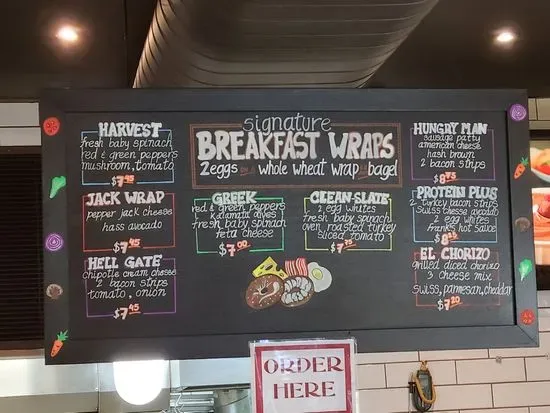 signature
BREAKFAST WRAPS
2 eggs on a whole wheat wrap or bagel
HARVEST
fresh baby spinach
red & green peppers
mushroom, tomato
JACK WRAP
pepper jack cheese
hass avocado
$7.45
HELL GATE
chipotle cream cheese
2 bacon strips
tomato, onion
$7.45
GREEK
red & green peppers
kalamata olives
fresh baby spinach
feta cheese
$7.00
CLEAN-SLATE
2 egg whites
fresh baby spanch
oven roasted turkey
sliced tomato
HUNGRY MAN
sausage patty
american cheese
hash brown
2 bacon strips
$8.75
PROTEIN PLUS
2 turkey bacon strips
swiss cheese avocado
2 egg whites
frank's hot sauce
EL CHORIZO
grilled diced chorizo
3 cheese mix
swiss, parmesan, cheddar
$7.20
ORDER
HERE